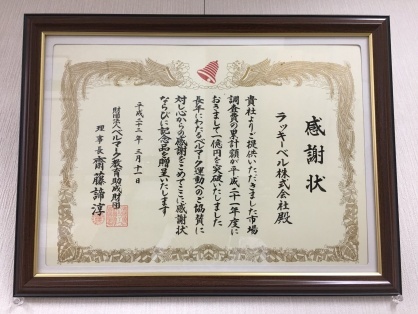 感謝状
ラッキーベル株式会社殿
貴社よりご提供いただきました市場
調査費の累計額が平成二十一年度に
おきまして一億円を突破いたしました
長年にわたるベルマーク運動へのご協賛に
対し心からの感謝をこめてここに感謝状
ならびに記念品を贈呈いたします
平成二十二年三月十一日
財団法人ベルマーク教育助成財団
理事長 齋藤諦淳